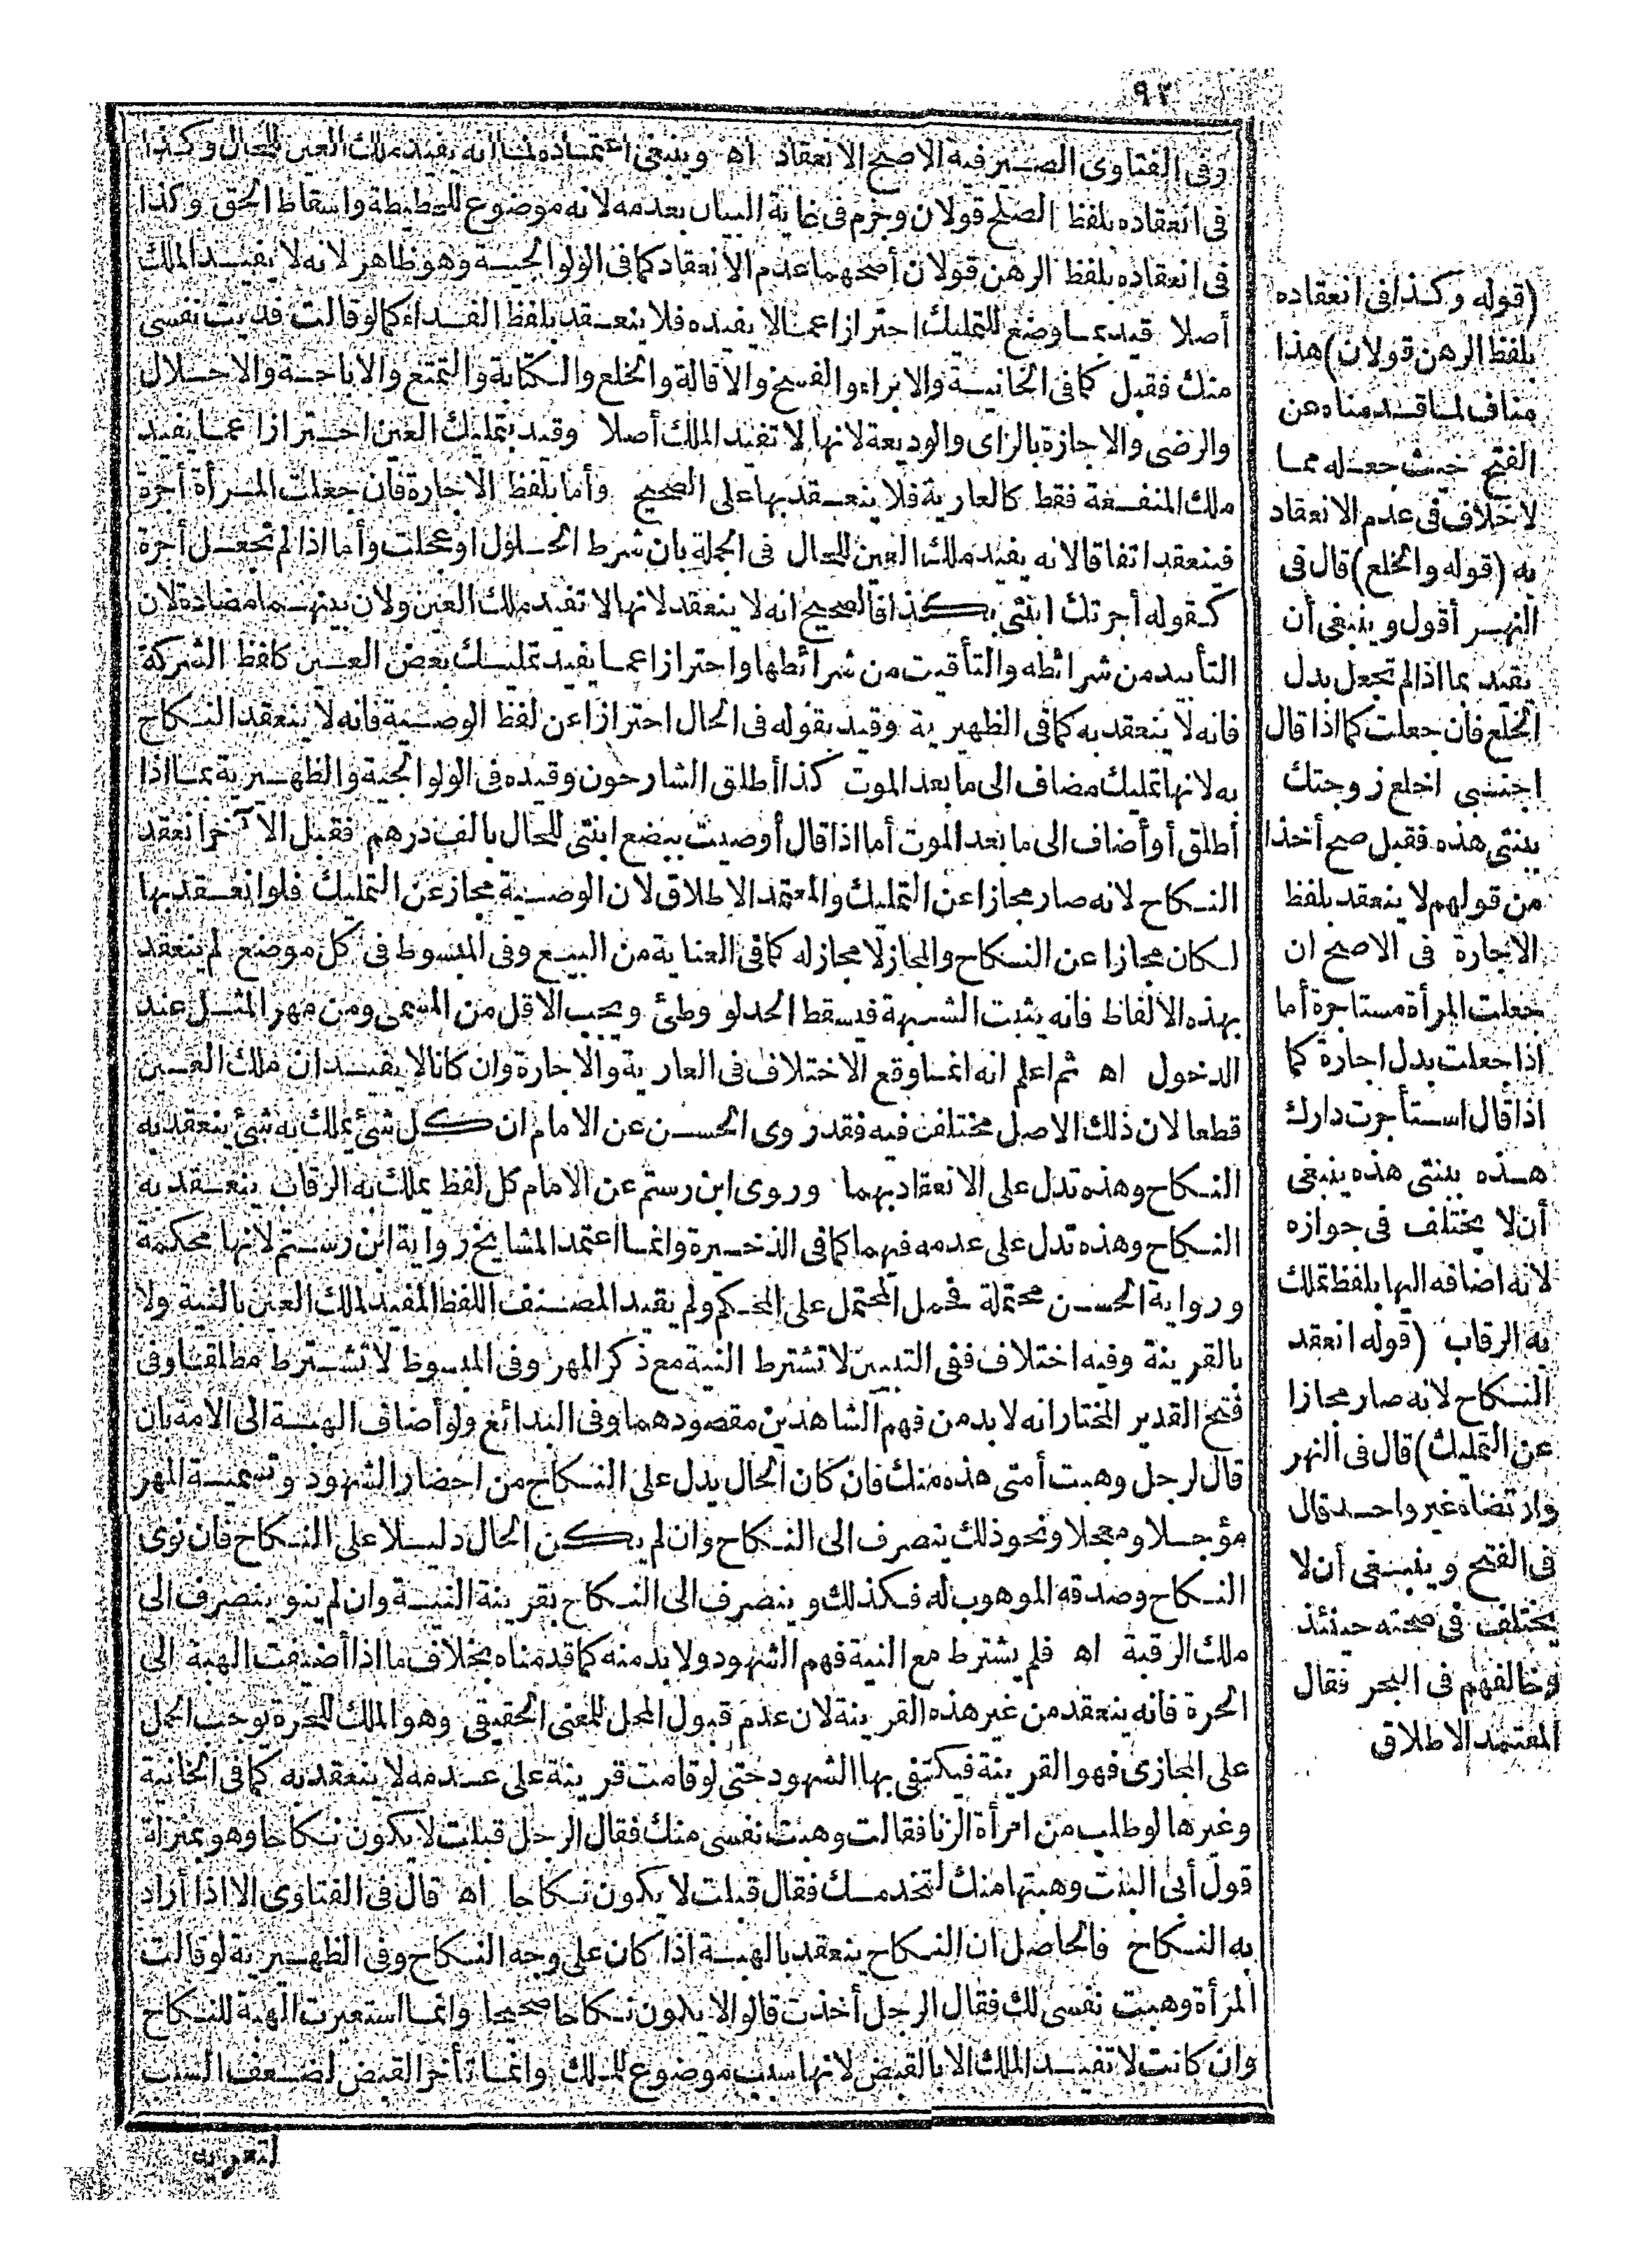 ٩٢
وفى الفتاوى الصيرفية الاصح الانعقاد اه وينبغى اعتماده لما انه يفيد ملك العين للحال وكذا
فى انعقاده بلفظ الصلح قولان وجزم فى غاية البيان بعدمه لانه موضوع للحطيطة واسقاط الحق وكذا
فى انعقاده بلفظ الرهن قولان أصحهما عدم الانعقاد كما فى الولوالجية وهو ظاهر لانه لا يفيد الملك
أصلا قيد بما وضع للتمليك احترازا عما لا يفيده فلا ينعقد بلفظ الفداء كما لو قالت فديت نفسى
منك فقبل كما فى الخانية والابراء والفسخ والاقالة والخلع والكتابة والتمتع والاباحة والاحلال
والرضى والاجازة بالزاى والوديعة لانها لا تفيد الملك أصلا وقيد بتمليك العين احترازا عما يفيد
ملك المنفعة فقط كالعارية فلا ينعقد بها على الصحيح وأما بلفظ الاجارة فان جعلت المرأة أجرة
فينعقد اتفاقا لانه يفيد ملك العين للحال فى الجملة بان شرط الحلول او عجلت وأما اذا لم تجعل أجرة
كقوله أجرتك ابنتى بكذا فالصحيح انه لا ينعقد لانها لا تفيد ملك العين ولان بينهما مضادة لان
التأبيد من شرائطه والتأقيت من شرائطها واحترازا عما يفيد تمليك بعض العين كلفظ الشركة
فانه لا ينعقد به كما فى الظهيرية وقيد بقوله فى الحال احترازا عن لفظ الوصية فانه لا ينعقد النكاح
به لانها تمليك مضاف الى ما بعد الموت كذا أطلق الشارحون وقيده فى الولوالجية والظهيرية بما اذا
أطلق أو أضاف الى ما بعد الموت أما اذا قال أوصيت ببضع ابنتى للحال بالف درهم فقبل الآخر انعقد
النكاح لانه صار مجازا عن التمليك والمعتمد الاطلاق لان الوصية مجاز عن التمليك فلو انعقد بها
لكان مجازا عن النكاح والمجاز لا مجاز له كما فى العناية من البيع وفى المبسوط فى كل موضع لم ينعقد
بهذه الالفاظ فانه يثبت الشبهة فيسقط الحد لو وطئ ويجب الاقل من المسمى ومن مهر المثل عند
الدخول اه ثم اعلم انه انما وقع الاختلاف فى العارية والاجارة وان كانا لا يفيدان ملك العين
قطعا لان ذلك الاصل مختلف فيه فقد روى الحسن عن الامام ان كل شئ يملك به شئ ينعقد به
النكاح وهذه تدل على الانعقاد بهما وروى ابن رستم عن الامام كل لفظ يملك به الرقاب ينعقد به
النكاح وهذه تدل على عدمه فيهما كما فى الذخيرة وانما اعتمد المشايخ رواية ابن رستم لانها محكمة
ورواية الحسن محتملة فحمل المحتمل على المحكم ولم يقيد المصنف اللفظ المفيد لملك العين بالنية ولا
بالقرينة وفيه اختلاف ففى التبيين لا تشترط النية مع ذكر المهر وفى المبسوط لا تشترط مطلقا وفى
فتح القدير المختار انه لا بد من فهم الشاهدين مقصودهما وفى البدائع ولو أضاف الهبة الى الامة بان
قال لرجل وهبت أمتى هذه منك فان كان الحال يدل على النكاح من احضار الشهود وتسمية المهر
مؤجلا ومعجلا ونحو ذلك ينصرف الى النكاح وان لم يكن الحال دليلا على النكاح فان نوى
النكاح وصدقه الموهوب له فكذلك وينصرف الى النكاح بقرينة النية وان لم ينو ينصرف الى
ملك الرقبة اه فلم يشترط مع النية فهم الشهود ولا بد منه كما قدمناه بخلاف ما اذا أضيفت الهبة الى
الحرة فانه ينعقد من غير هذه القرينة لان عدم قبول المحل للمعنى الحقيقى وهو الملك للحرة يوجب الحمل
على المجازى فهو القرينة فيكتفى بها الشهود حتى لو قامت قرينة على عدمه لا ينعقد به كما فى الخانية
وغيرها لو طلب من امرأة الزنا فقالت وهبت نفسى منك فقال الرجل قبلت لا يكون نكاحا وهو بمنزلة
قول أبى البنت وهبتها منك لتخدمك فقال قبلت لا يكون نكاحا اه قال فى الفتاوى الا اذا أراد
به النكاح فالحاصل ان النكاح ينعقد بالهبة اذا كان على وجه النكاح وفى الظهيرية لو قالت
المرأة وهبت نفسى لك فقال الرجل أخذت قالوا لا يكون نكاحا صحيحا وانما استعيرت الهبة للنكاح
وان كانت لا تفيد الملك الا بالقبض لانها سبب موضوع للملك وانما تأخر القبض لضعف السبب
لتعريه
(قوله وكذا فى انعقاده
بلفظ الرهن قولان) هذا
مناف لما قدمناه عن
الفتح حيث جعله مما
لا خلاف فى عدم الانعقاد
به (قوله والخلع) قال فى
النهر أقول وينبغى أن
يقيد بما اذا لم تجعل بدل
الخلع فان جعلت كما اذا قال
اجنبى اخلع زوجتك
ببنتى هذه فقبل صح أخذا
من قولهم لا ينعقد بلفظ
الاجارة فى الاصح ان
جعلت المرأة مستاجرة أما
اذا جعلت بدل اجارة كما
اذا قال استأجرت دارك
هذه ببنتى هذه ينبغى
أن لا يختلف فى جوازه
لانه اضافه اليها بلفظ تملك
به الرقاب (قوله انعقد
النكاح لانه صار مجازا
عن التمليك) قال فى النهر
وارتضاه غير واحد قال
فى الفتح وينبغى أن لا
يختلف فى صحته حينئذ
وخالفهم فى البحر فقال
المعتمد الاطلاق